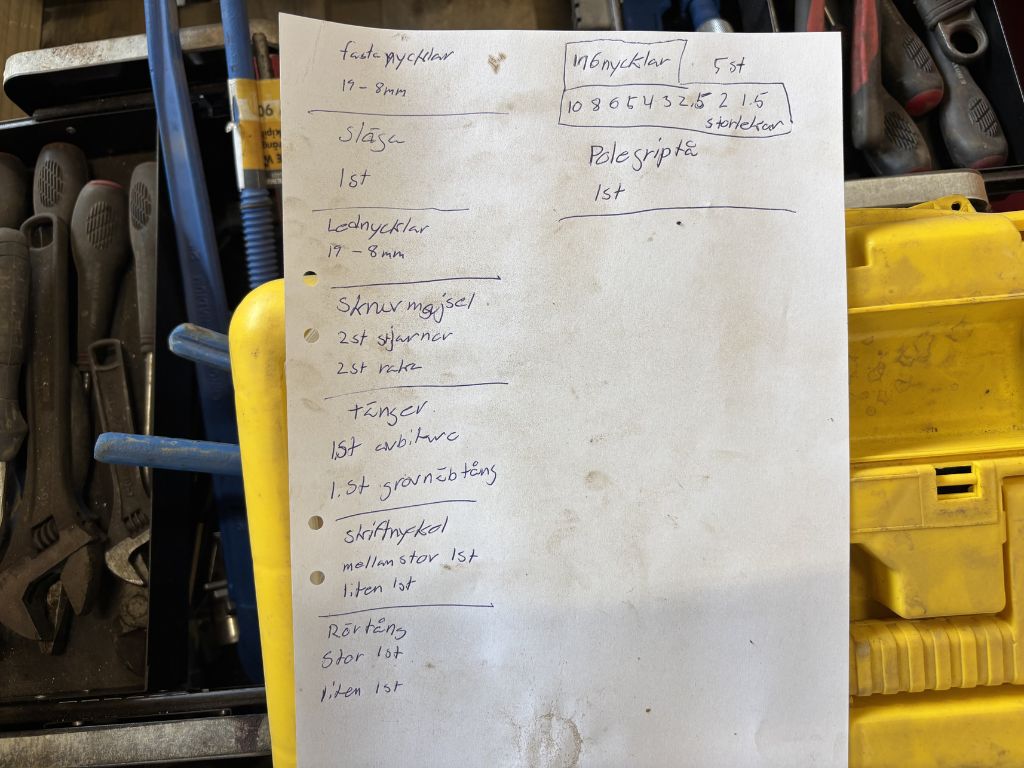 fastanycklar
19 - 8mm
släga
1st
Lednycklar
19 - 8mm
skruvmejsel
2st stjärnor
2st raka
tänger
1st avbitare
1.st grovnäbtång
skiftnyckel
mellanstor 1st
liten 1st
Rörtång
Stor 1st
liten 1st
in6nycklar 5st
10 8 6 5 4 3 2.5 2 1.5
storlekar
Polegriptå
1st
90